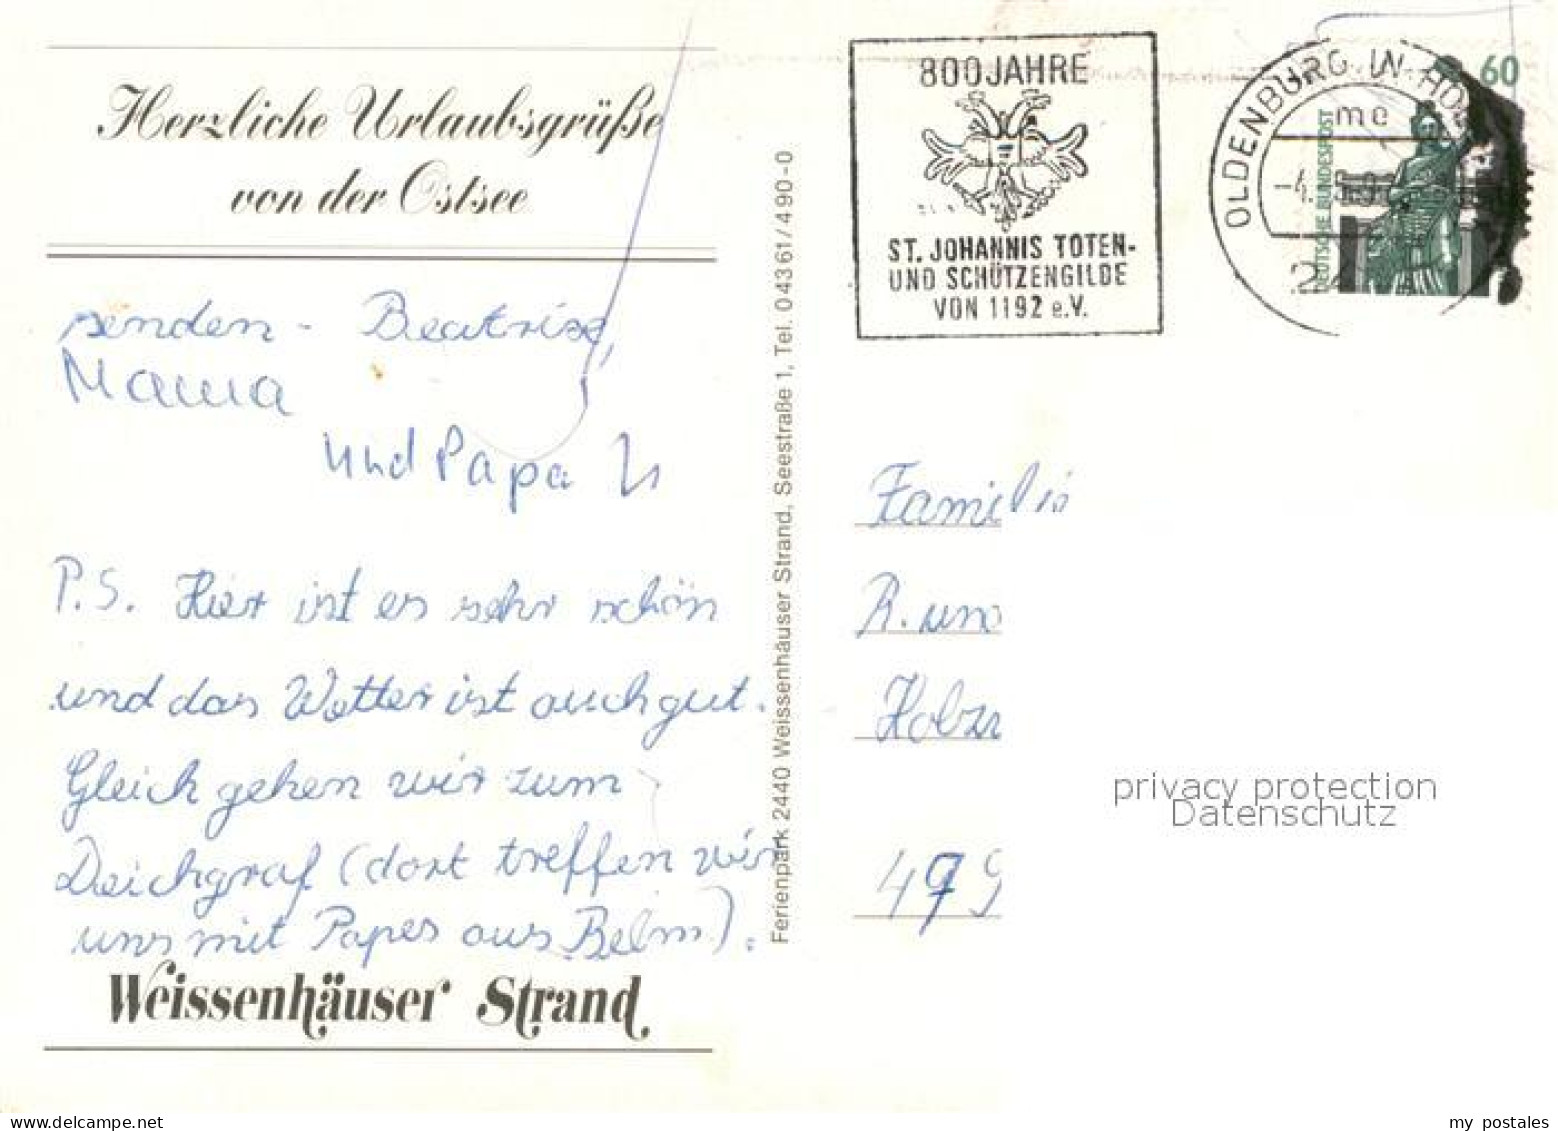 Herzliche Urlaubsgrüße
von der Ostsee
senden - Beatrise,
Mama
und Papa
P.S. Hier ist es sehr schön
und das Wetter ist auch gut.
Gleich gehen wir zum
Deichgraf (dort treffen wir
uns mit Papes aus Belm).
Weissenhäuser Strand
Ferienpark 2440 Weissenhäuser Strand, Seestraße 1, Tel. 04361/490-0
800 JAHRE
ST. JOHANNIS TOTEN-
UND SCHÜTZENGILDE
VON 1192 e.V.
OLDENBURG IN HOL
mc
60
DEUTSCHE BUNDESPOST
Familie
R. und
Holzr
499
privacy protection
Datenschutz
delcampe.net
my postales